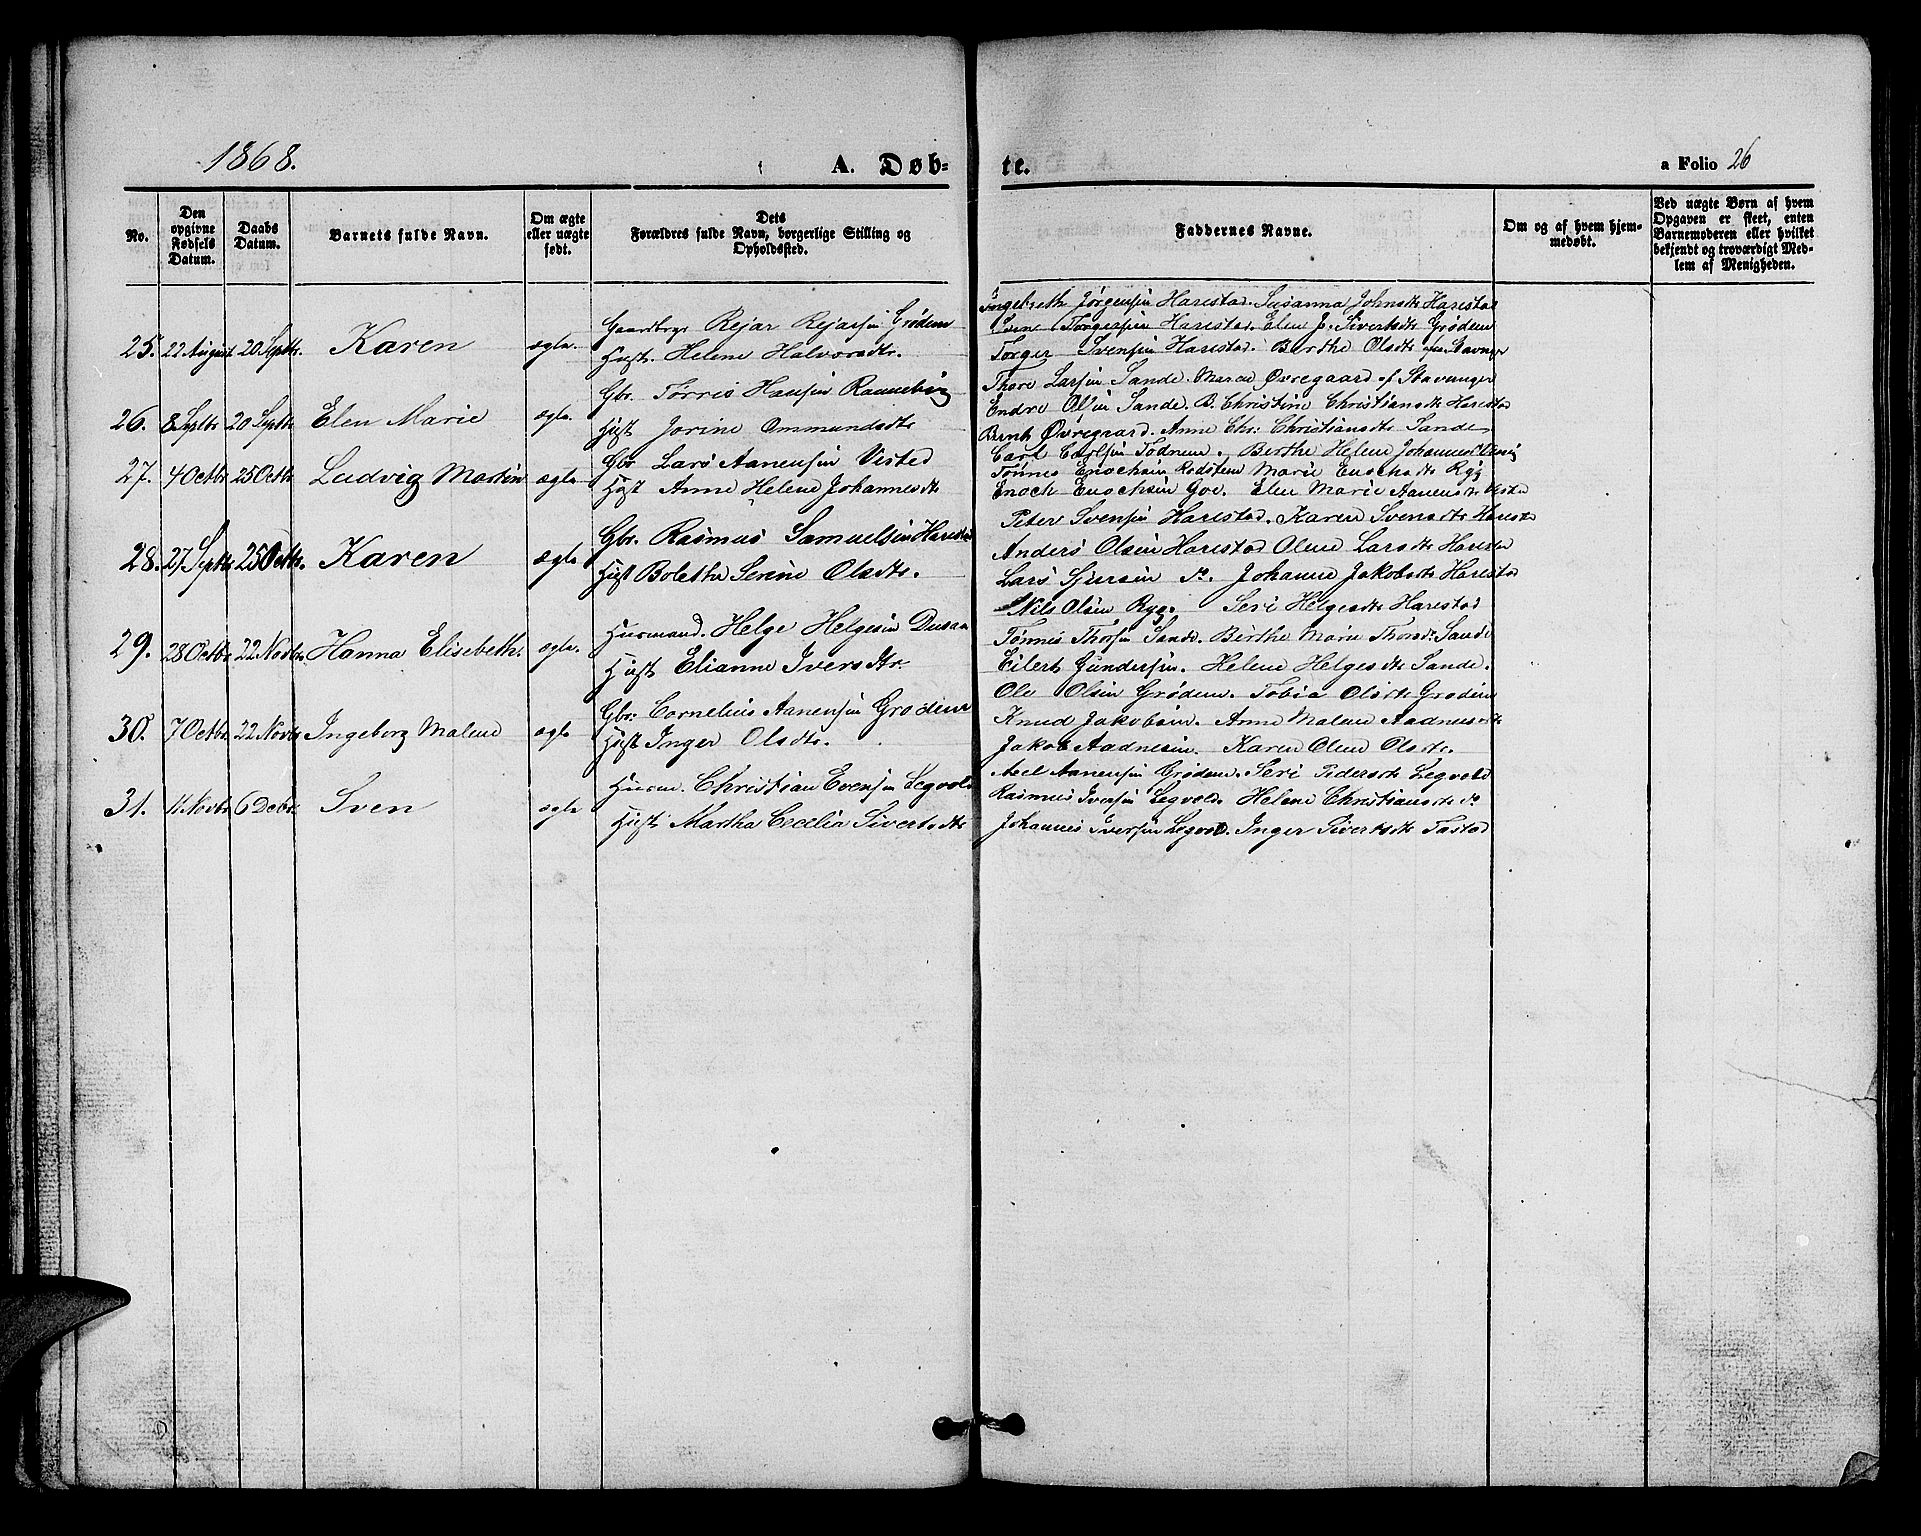 1868.
A. Døb-
te.
a Folio 26
No.
Den opgivne Fødsels Datum.
Daabs Datum.
Barnets fulde Navn.
Om ægte eller uægte født.
Dets Forældres fulde Navn, borgerlige Stilling og Opholdssted.
Faddernes Navne.
Om og af hvem hjemmedøbt.
Ved uægte Børn af hvem Opgaven er skeet, enten Barnemoderen eller hvilket bekjendt og troværdigt Medlem af Menigheden.
25. 22 August 20 Septbr. Karen ægte.
Gaardbrgr Rejar Rejarsen Grødem
Hust. Helene Halvorsdtr.
Ingebreth Jørgensen Harestad. Susanna Johnsdtr Harestad
Svend Torgersen Harestad. Elen J. Sivertsdtr Grødem
Torger Svensen Harestad. Berthe Olsdtr Stavnger
26. 8 Septbr 20 Septbr Elen Marie ægte.
Gbr. Torris Hansen Ranneberg
Hust Jorine Ommundsdtr
Thore Larsen Sande. Maren Øvregaard af Stavanger
Endre Olsen Sande. B. Christine Christiansdtr Harestad
Bernt Øvregaard. Anne Chr: Christiansdtr Sande
27. 4 Octbr 25 Octbr Ludvig Martin ægte
Gbr Lars Aanensen Visted
Hust Anne Helene Johannesdtr
Carl Carlsen Todnem. Berthe Helene Johannesdtr
Tønnes Enochsen Rodstem Marie Enochsdtr Ryg
Enoch Enochsen Goe. Elen Marie Aanensdtr Viste
28. 27 Septbr 25 Octbr. Karen ægte
Gbr. Rasmus Samuelsen Harestad
Hust Boletha Serine Olsdtr.
Peter Svensen Harestad. Karen Svensdtr Harestad
Anders Olsen Harestad Olene Larsdtr Harestad
Lars Sjursen do. Johanne Jakobsdtr Harestad
29. 28 Octbr 22 Novbr. Hanna Elisebeth. ægte.
Huusmand. Helge Helgesen Dusan
Hust Elianne Iversdtr.
Nils Olsen Ryg. Seri Helgesdtr Harestad
Tønnes Thorsen Sande. Berthe Marie Thorsdr. Sande
Eilert Gundersen. Helene Helgesdtr Sande.
30. 7 Octbr. 22 Novbr Ingeborg Malene ægte
Gbr: Cornelius Aanensen Grødem
Hust Inger Olsdtr.
Ole Olsen Grødem. Tobia Olsdtr Grødem
Knud Jakobsen. Anne Malene Aadnesdtr
Jakob Aadnesen. Karen Olene Olsdtr.
31. 11 Novbr. 6 Decbr. Sven ægte
Huusm. Christian Evensen Legvold
Hust: Martha Cecilia Sivertsdtr
Axel Aanensen Grødem. Seri Pedersdtr Legvold
Rasmus Iversen Legvold. Helene Christiansdtr do
Johannes Iversen Legvold. Inger Sivertsdtr Tastad